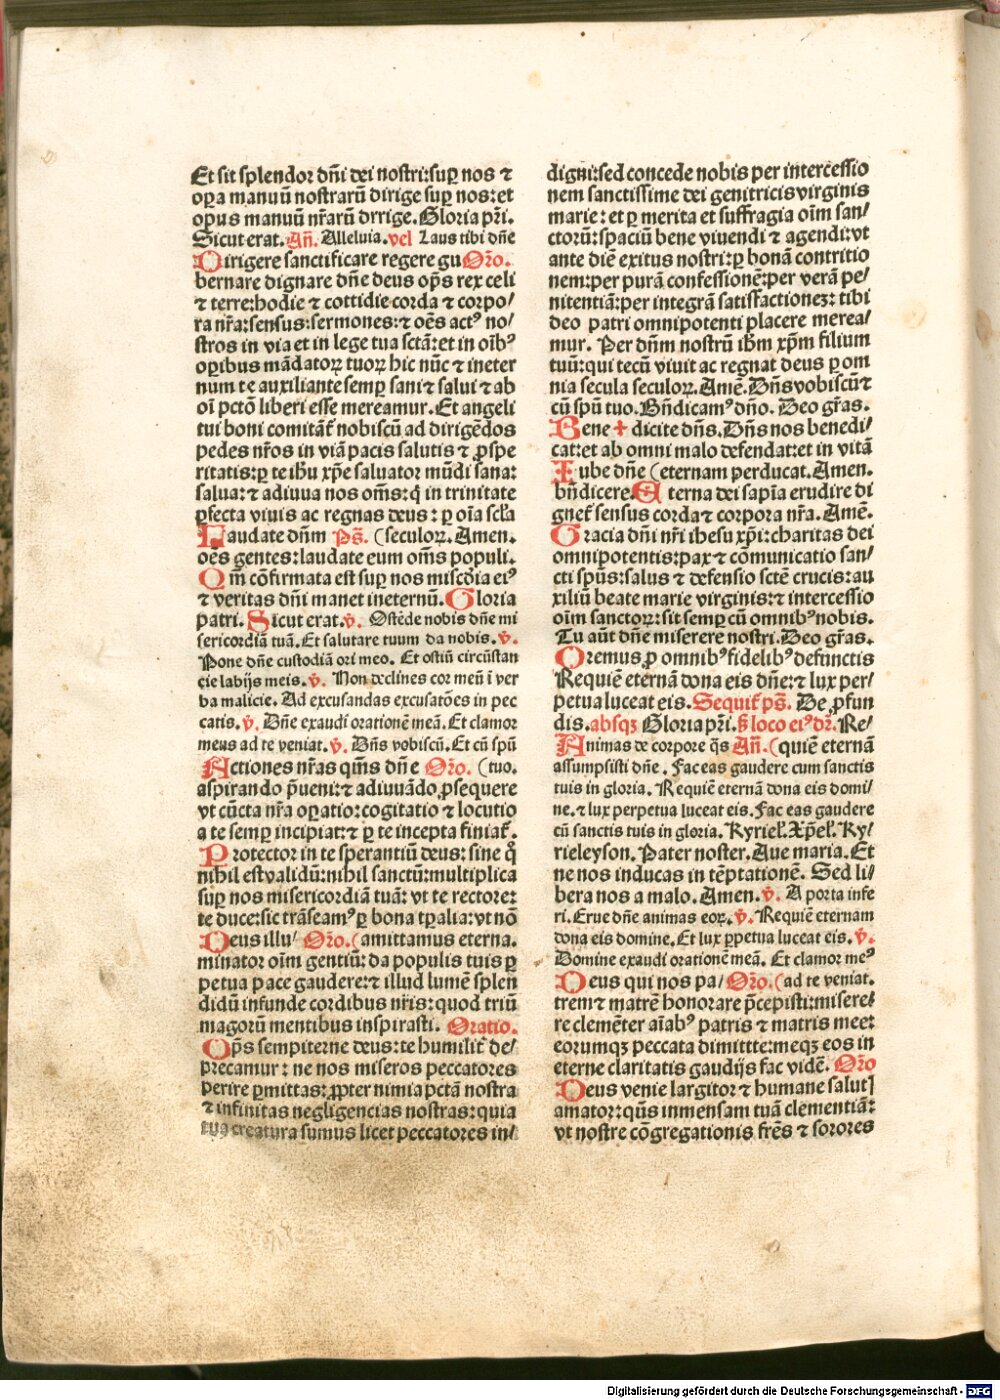 Et sit splendor dñi dei nostri:suꝑ nos ⁊
oꝑa manuū nostrarū dirige suꝑ nos:et
opus manuū nr̃arū drrige. Gloria pr̃i.
Sicut erat. Añ. Alleluia. vel Laus tibi dñe
Dirigere sanctificare regere gu Oro.
bernare dignare dñe deus oṗs rex celi
⁊ terre:hodie ⁊ cottidie corda ⁊ corpo/
ra nr̃a:sensus:sermones:⁊ oẽs actꝰ no/
stros in via et in lege tua sctã:et in oĩbꝰ
oꝑibus mãdatoꝝ tuoꝝ hic nũc ⁊ ineter
num te auxiliante semꝑ sani ⁊ salui ⁊ ab
oĩ pctõ liberi esse mereamur. Et angeli
tui boni comitãt̃ nobiscū ad dirigẽdos
pedes nr̃os in viã pacis salutis ⁊ ꝓspe
ritatis:ꝑ te ihũ xp̃e saluator mũdi sana:
salua:⁊ adiuua nos om̃s: q̃ in trinitate
ꝑfecta viuis ac regnas deus: ꝑ oĩa scl̃a
Laudate dñm Ps̃. (seculoꝝ. Amen.
oẽs gentes:laudate eum om̃s populi.
Qm̃ cõfirmata est suꝑ nos misc̃dia eiꝰ
⁊ veritas dñi manet ineternū. Gloria
patri. Sicut erat. v̄. Ostẽde nobis dñe mi
sericordiã tuã. Et salutare tuum da nobis. v̄.
Pone dñe custodiã ori meo. Et ostiū circũstan
cie labijs meis. v̄. Non declines cor meū ĩ ver
ba malicie. Ad excusandas excusatões in pec
catis. v̄. Dñe exaudi orationē meã. Et clamor
meus ad te veniat. v̄. Dñs vobiscū. Et cū spũ
Actiones nr̃as qm̃s dñe Oro. (tuo.
aspirando p̃ueni:⁊ adiuuãdo ꝓsequere
vt cũcta nr̃a oꝑatio:cogitatio ⁊ locutio
a te semꝑ incipiat:⁊ ꝑ te incepta finiat̃.
Protector in te sperantiū deus: sine q̊
nihil est validū:nihil sanctū:multiplica
suꝑ nos misericordiã tuã: vt te rectore:
te duce:sic trãseamꝰ ꝑ bona tꝑalia:vt nõ
Deus illu/ Oro. (amittamus eterna.
minator oĩm gentiū:da populis tuis ꝑ
petua pace gaudere:⁊ illud lumẽ splen
didū infunde cordibus nr̃is:quod triū
magorū mentibus inspirasti. Oratio.
Oṗs sempiterne deus:te humilit̃ de/
precamur: ne nos miseros peccatores
perire ꝑmittas:ꝓpter nimia pctã nostra
⁊ infinitas negligencias nostras:quia
tua creatura sumus licet peccatores in/
digni:sed concede nobis per intercessio
nem sanctissime dei genitricis virginis
marie: et ꝑ merita et suffragia oĩm san/
ctorū:spaciū bene viuendi ⁊ agendi:vt
ante diẽ exitus nostri:ꝑ bonã contritio
nem:per purã confessionẽ:per verã pe/
nitentiã:per integrã satisfactioneꝫ: tibi
deo patri omnipotenti placere merea/
mur. Per dñm nostrū ihm̃ xpm̃ filium
tuū:qui tecū viuit ac regnat deus ꝑ om
nia secula seculoꝝ. Amẽ. Dñs vobiscū ⁊
cū spũ tuo. Bñdicamꝰ dño. Deo gr̃as.
Bene + dicite dñs. Dñs nos benedi/
cat:et ab omni malo defendat:et in vitã
Iube dñe (eternam perducat. Amen.
bñdicere. Eterna dei sapĩa erudire di
gnet̃ sensus corda ⁊ corpora nr̃a. Amẽ.
Gracia dñi nr̃i ihesu xp̃i:charitas dei
omnipotentis:pax ⁊ cõmunicatio san/
cti spũs:salus ⁊ defensio sctẽ crucis:au
xiliū beate marie virginis:⁊ intercessio
oĩm sanctoꝝ:sit semꝑ cū omnibꝰ nobis.
Tu aũt dñe miserere nostri. Deo gr̃as.
Oremus ꝓ omnibꝰ fidelibꝰ defunctis
Requiẽ eternã dona eis dñe:⁊ lux per/
petua luceat eis. Sequit̃ ps̃. De ꝓfun
dis. absqꝫ Gloria pr̃i. ß loco eiꝰ dr̃. Re/
Animas de corpore q̃s Añ. (quiẽ eternã
assumpsisti dñe. Fac eas gaudere cum sanctis
tuis in gloria. Requiẽ eternã dona eis domi/
ne. ⁊ lux perpetua luceat eis. Fac eas gaudere
cū sanctis tuis in gloria. Kyriel̃. Xp̃el̃. Ky/
rieleyson. Pater noster. Aue maria. Et
ne nos inducas in tẽptationẽ. Sed li/
bera nos a malo. Amen. v̄. A porta infe
ri. Erue dñe animas eoꝝ. v̄. Requiẽ eternam
dona eis domine. Et lux ꝑpetua luceat eis. v̄.
Domine exaudi orationẽ meã. Et clamor meꝰ
Deus qui nos pa/ Oro. (ad te veniat.
trem ⁊ matrẽ honorare p̃cepisti:misere/
re clemẽter aĩabꝰ patris ⁊ matris mee:
eorumqꝫ peccata dimittte:meqꝫ eos in
eterne claritatis gaudijs fac vidẽ. Oro
Deus venie largitor ⁊ humane salutꝭ
amator:qũs inmensam tuã clementiã:
vt nostre cõgregationis frẽs ⁊ sorores
Digitalisierung gefördert durch die Deutsche Forschungsgemeinschaft - DFG